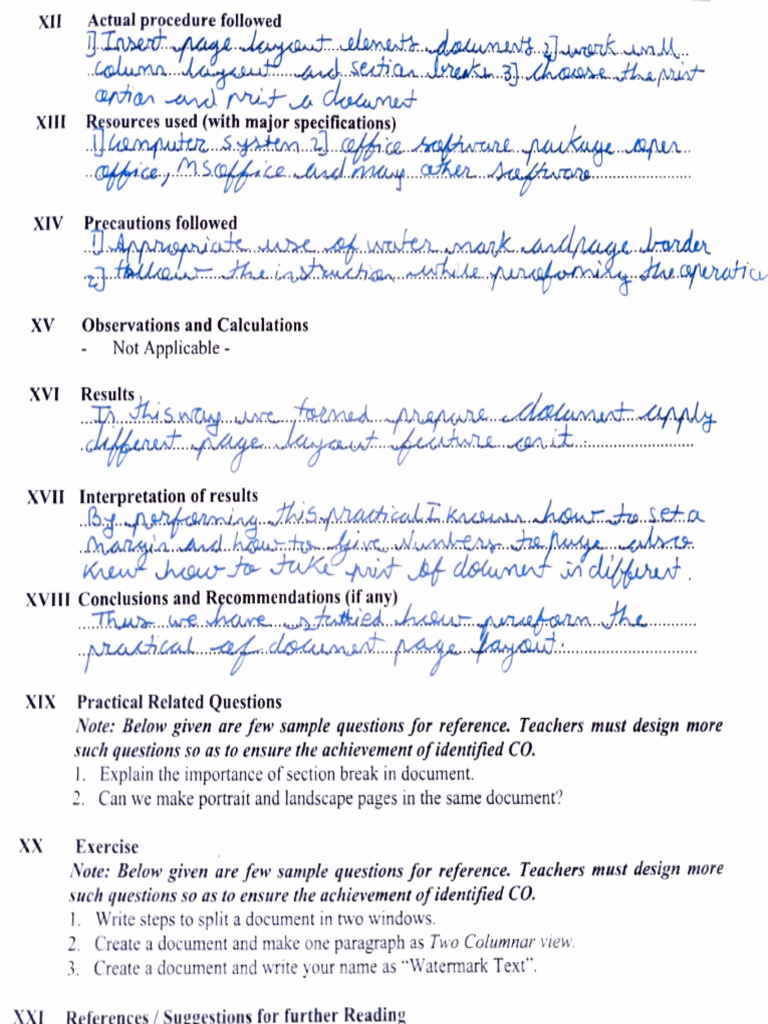 XII Actual procedure followed
1] Insert page layout elements documents 2] work in M
column layout and section breaks 3] choose the print
option and print a document
XIII Resources used (with major specifications)
1] computer system 2] office software package open
office, MS office and may other software
XIV Precautions followed
1] Appropriate use of water mark and page border
2] follow the instruction while perefoming the operatio
XV Observations and Calculations
- Not Applicable -
XVI Results
In this way we prepare document apply
different page layout feature on it.
XVII Interpretation of results
By performing this practical I known how to set a
margin and how to give Numbers to page also
knew how to take print of document in different.
XVIII Conclusions and Recommendations (if any)
Thus we have studied how pereform the
practical of document page layout.
XIX Practical Related Questions
Note: Below given are few sample questions for reference. Teachers must design more
such questions so as to ensure the achievement of identified CO.
1. Explain the importance of section break in document.
2. Can we make portrait and landscape pages in the same document?
XX Exercise
Note: Below given are few sample questions for reference. Teachers must design more
such questions so as to ensure the achievement of identified CO.
1. Write steps to split a document in two windows.
2. Create a document and make one paragraph as Two Columnar view.
3. Create a document and write your name as “Watermark Text”.
XXI References / Suggestions for further Reading